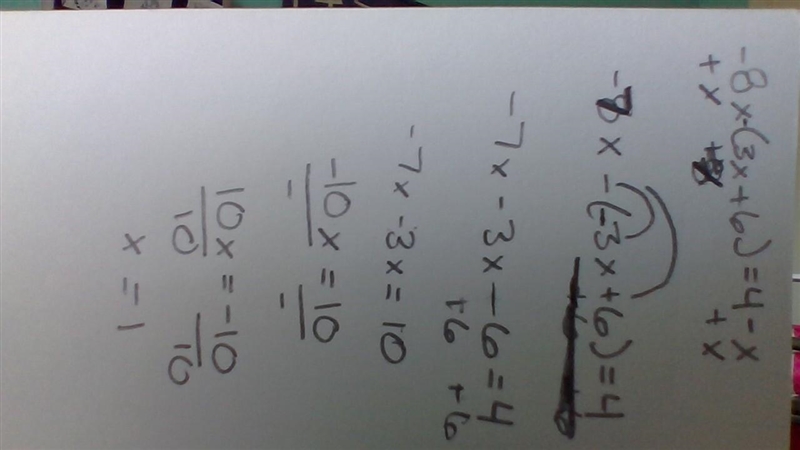 -8x-(3x+6)=4-x
+x +x
x -(-3x+6)=4
-7x -3x -6 = 4
+6 +6
-7x -3x = 10
-10x = 10
- -
10x = -10
10 10
x = 1